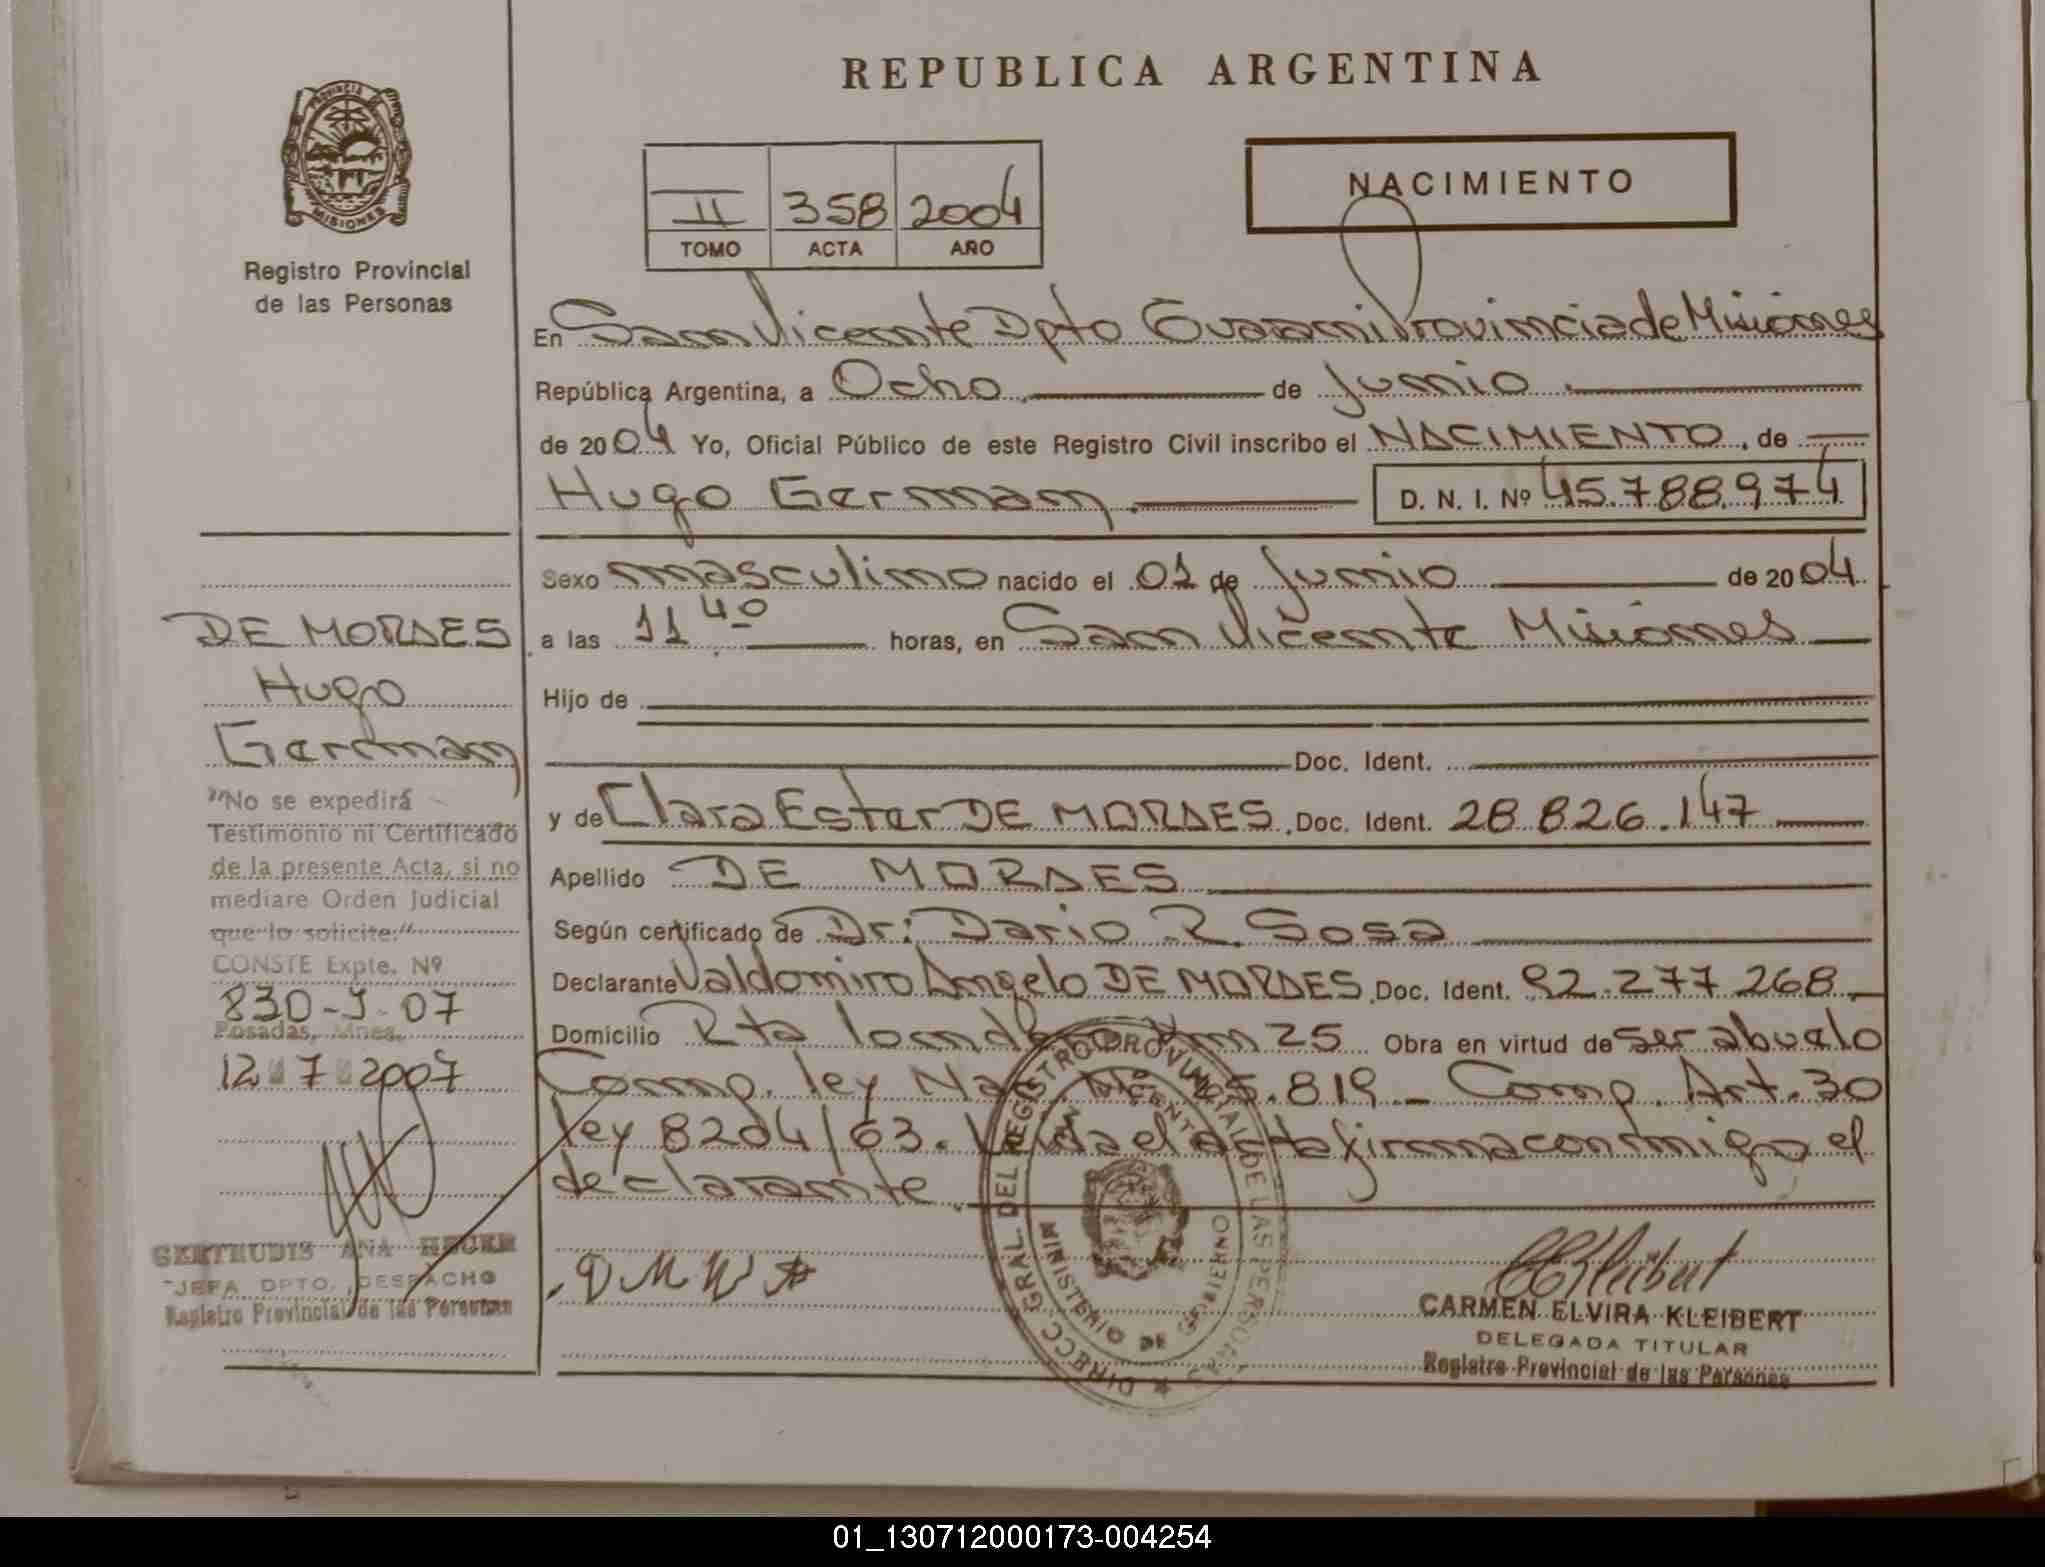 REPUBLICA ARGENTINA
PROVINCIA DE
MISIONES
Registro Provincial
de las Personas
II 358 2004
TOMO ACTA AÑO
NACIMIENTO
En San Vicente Dpto Guarani Provincia de Misiones
República Argentina, a Ocho de Junio
de 2004 Yo, Oficial Público de este Registro Civil inscribo el NACIMIENTO, de
Hugo German D. N. I. Nº 45.788.974
Sexo masculino nacido el 01 de Junio de 2004
a las 11 40 horas, en San Vicente Misiones
Hijo de
Doc. Ident.
y de Clara Ester DE MORAES, Doc. Ident. 28 826.147
Apellido DE MORAES
Según certificado de Dr: Dario R. Sosa
Declarante Valdomiro Angelo DE MORAES, Doc. Ident. 92.277 268
Domicilio Rta Km 25 Obra en virtud de ser abuelo
Comp. ley Nac. Nº 25.819 - Comp. Art. 30
ley 8204/63. Leida el acta firma conmigo el
declarante
DE MORAES
Hugo
German
"No se expedirá
Testimonio ni Certificado
de la presente Acta, si no
mediare Orden Judicial
que lo solicite."
CONSTE Expte. Nº
830-J-07
Posadas, Mnes.
12 7 2007
GERTRUDIS ANA
JEFA DPTO. DESPACHO
Registro Provincial de las Personas
DIRECC. GRAL. DEL REGISTRO PROVINCIAL DE LAS PERSONAS
MINISTERIO DE GOBIERNO
SAN VICENTE
CARMEN ELVIRA KLEIBERT
DELEGADA TITULAR
Registro Provincial de las Personas
01_130712000173-004254